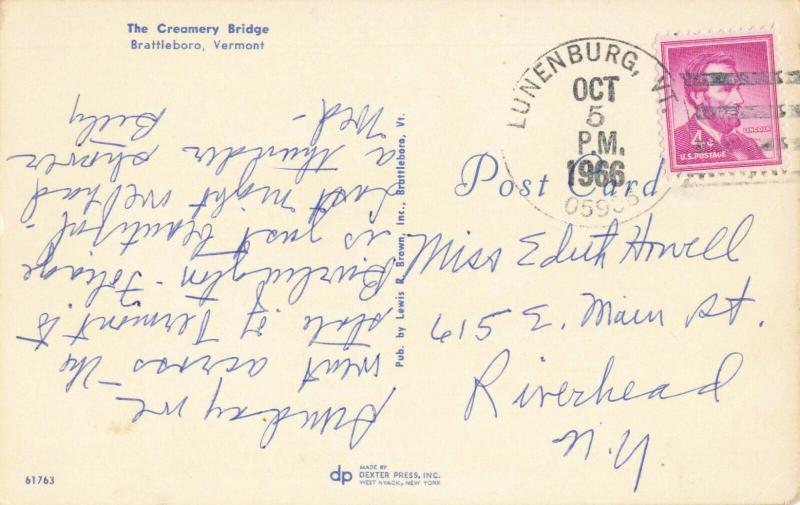 The Creamery Bridge
Brattleboro, Vermont
Sunday we
went across the
state of Vermont to
Burlington - Foliage
is just beautiful -
Last night we had
a thunder shower
Wed -
61763
Pub. by Lewis R. Brown, Inc., Brattleboro, Vt.
dp
MADE BY
DEXTER PRESS, INC.
WEST NYACK, NEW YORK
LUNENBURG, VT.
OCT
5
P.M.
1966
4¢
LINCOLN
U.S. POSTAGE
Post Card
Miss Edith Howell
615 E. Main St.
Riverhead
N.Y.